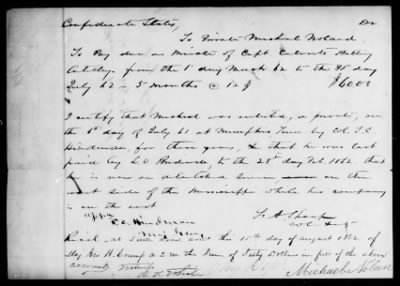 Confederate States, Dr
To Private Michael Noland
To Pay due as Private of Capt Calverts Battery
Artillery from the 1st day March 62 to the 31st day
July 62 - 5 months @ 12 $ $60.00
I certify that Michael was enlisted, a private, on
the 6th day of July 61 at Memphis Tenn by Col T. C.
Hindman, for three years, & that he was last
paid by to the 28th day Feb 1862 that
he is now on detached service, on the
west side of the Mississippi while his company
is on the east
T. C. Hindman
Maj Genl
Recd at Little Rock this 15th day of August 1862 of
Maj Jno H. Crump the Sum of Sixty Dollars in full of the above
account
Michael Nolan